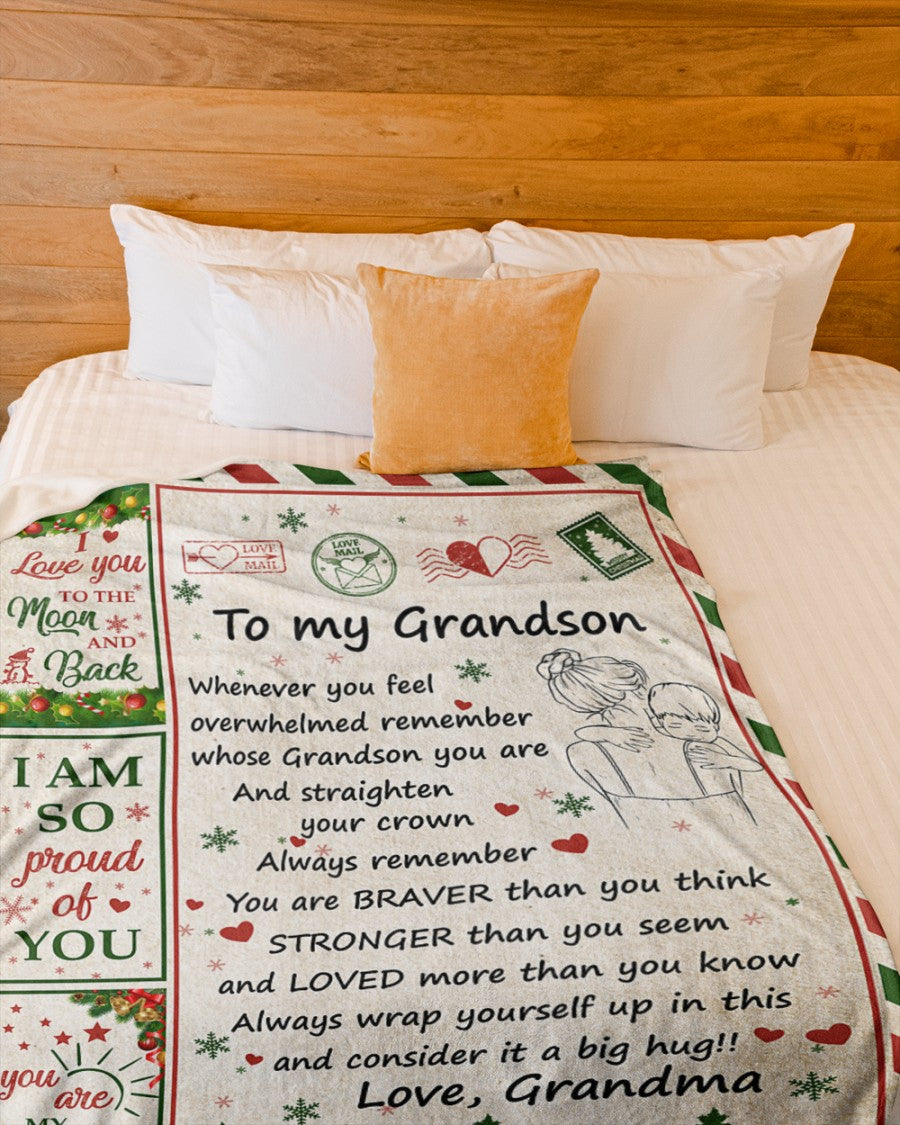 I
Love you
TO THE
Moon
AND
Back
I AM
SO
proud
of
YOU
you
are
MY
LOVE
MAIL
LOVE
MAIL
To my Grandson
Whenever you feel
overwhelmed remember
whose Grandson you are
And straighten
your crown
Always remember
You are BRAVER than you think
STRONGER than you seem
and LOVED more than you know
Always wrap yourself up in this
and consider it a big hug!!
Love, Grandma